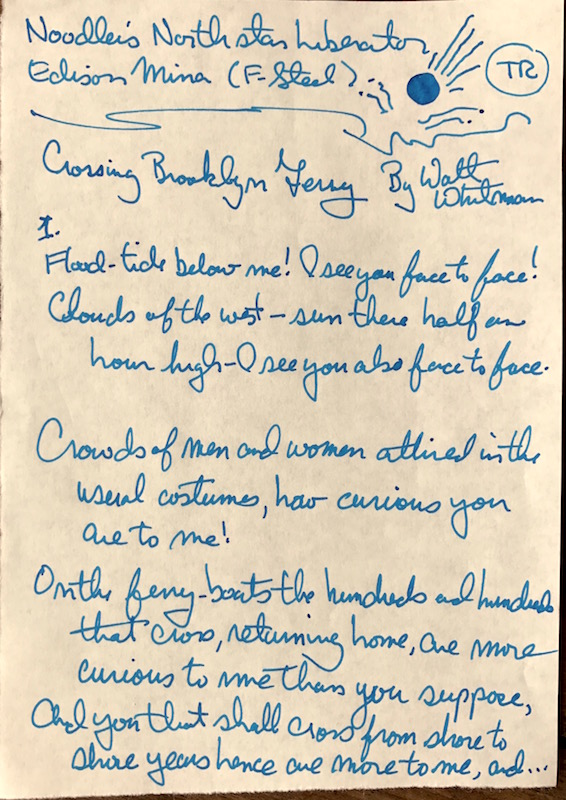 Noodler's North star Liberator,
Edison Mina (F-Steel)
TR
Crossing Brooklyn Ferry By Walt
Whitman
1.
Flood-tide below me! I see you face to face!
Clouds of the west - sun there half an
hour high - I see you also face to face.
Crowds of men and women attired in the
usual costumes, how curious you
are to me!
On the ferry-boats the hundreds and hundreds
that cross, returning home, are more
curious to me than you suppose,
And you that shall cross from shore to
shore years hence are more to me, and...